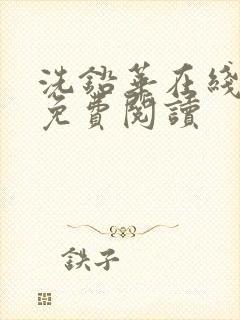 洗鉛華在綫
免費閱讀
鉄子